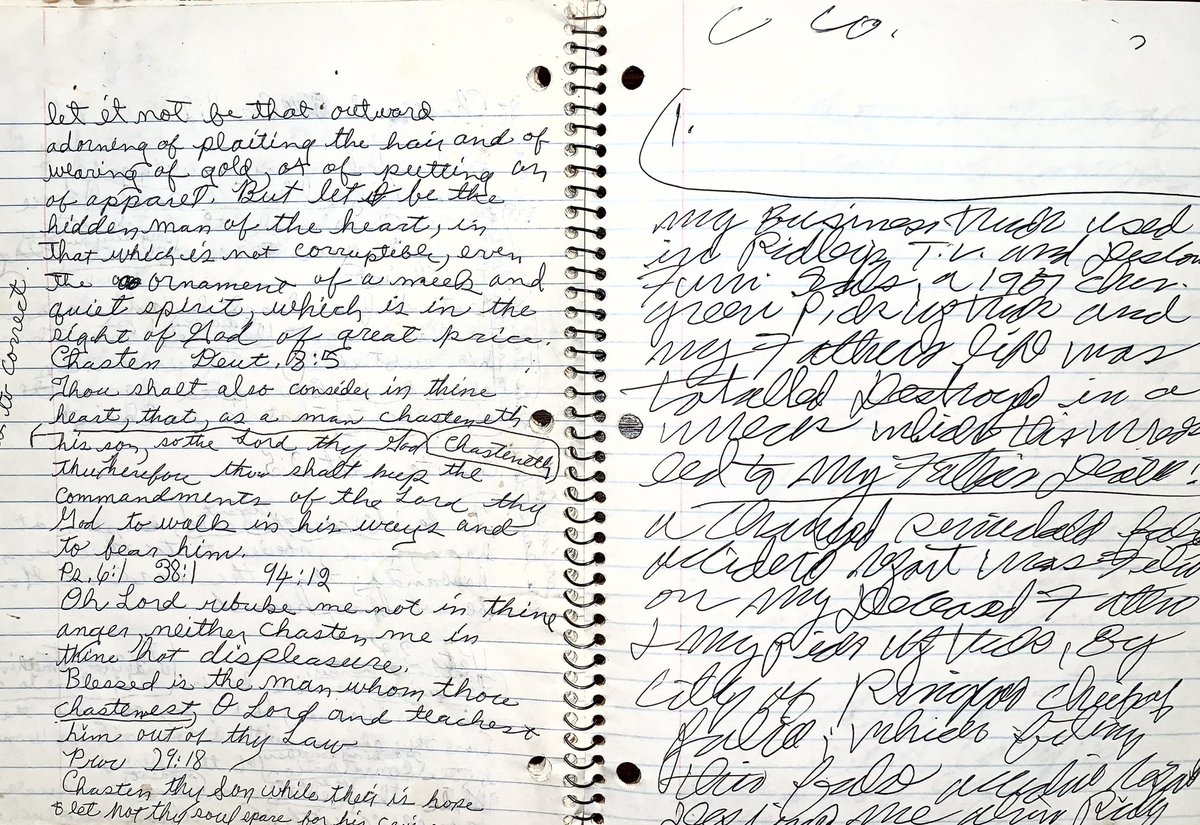 let it not be that outward
adorning of plaiting the hair and of
wearing of gold, or of putting on
of apparel. But let it be the
hidden man of the heart, in
that which is not corruptible, even
the ornament of a meek and
quiet spirit, which is in the
sight of God of great price.
Chasten Deut. 8:5
Thou shalt also consider in thine
heart, that, as a man chasteneth
his son, so the Lord thy God chasteneth
thee therefore thou shalt keep the
commandments of the Lord thy
God to walk in his ways and
to fear him.
Ps. 6:1 38:1 94:12
Oh Lord rebuke me not in thine
anger, neither chasten me in
thine hot displeasure.
Blessed is the man whom thou
chastenest, O Lord and teachest
him out of thy Law
Prov 29:18
Chasten thy Son while their is hope
& let not thy soul spare for his
to correct
Co.
1.
my Business truck used
in Ridley T.V. and
Furn. a 1957 Chev.
green Pick up truck and
my Fathers life was
totalled Destroyed in a
wreck which this wreck
led to my Fathers Death.
a
accident report was
on my Deceased Father
& my Pick up truck, By
City of
which
this false accident
me